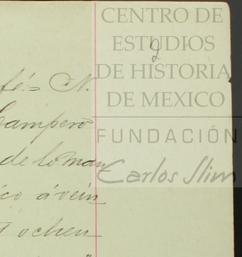 CENTRO DE
ESTUDIOS
2
DE HISTORIA
DE MEXICO
FUNDACIÓN
Carlos Slim
fé= N.
Campero
de loman
ico á vein
t ochen